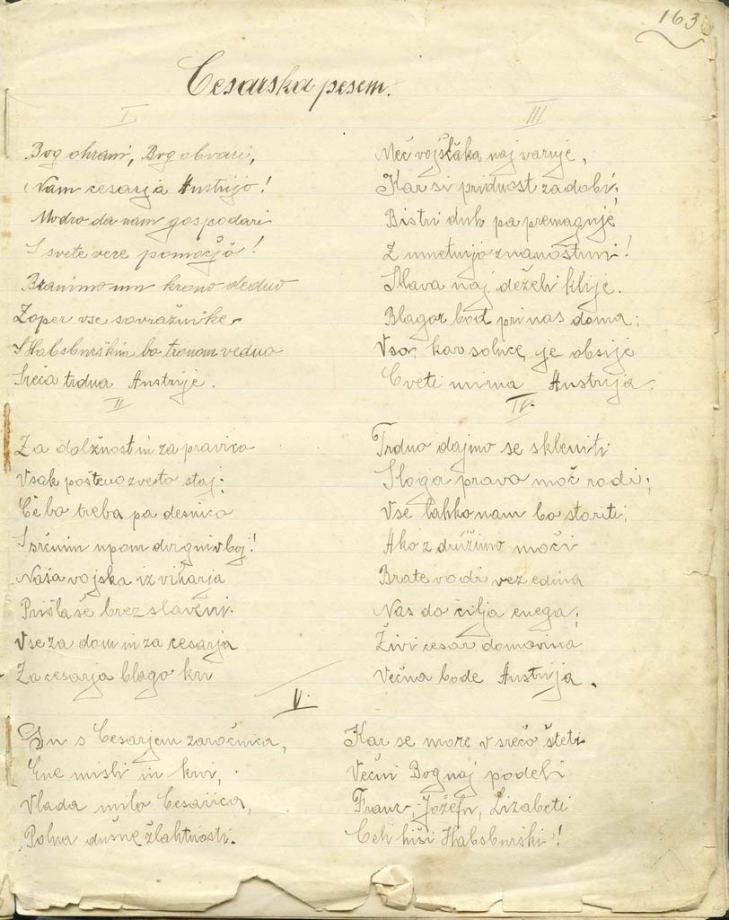 163
Cesarska pesem.
I
Bog ohrani, Bog obvari,
Nam cesarja Austrijo!
Modro da nam gospodari
S svete vere pomočjo!
Branimo mu krono dedno
Zoper vse sovražnike
S Habsburškim bo tronom vedno
Sreča trdna Austrije.
II
Za dolžnost in za pravico
Vsak pošteno zvesto stoj;
Če bo treba pa desnico
S srčnim upom dvigni v boj!
Naša vojska iz viharja
Prišla še brez slave ni.
Vse za dom in za cesarja
Za cesarja blago kri
III
Meč vojščaka naj varuje,
Kar si pridnost zadobi;
Bistri duh pa premaguje
Z umetnijo znanostmi!
Slava naj deželi klije.
Blagor bod pri nas doma;
Vsa, kar solnce je obsije
Cveti mirna Austrija.
IV.
Trdno dajmo se skleniti
Sloga pravo moč rodi;
Vse lahko nam bo storiti;
Ako združimo moči
Brate vodi vez edina
Nas do cilja enega;
Živi cesar domovina
Večna bode Austrija.
V.
In s Cesarjem zaročnica,
Ene misli in krvi,
Vlada milo Cesarica,
Polna dušne žlahtnosti.
Kar se more v srečo šteti
Večni Bog naj podeli
Franc Jožefu, Lizabeti
Celi hiši Habsburški!